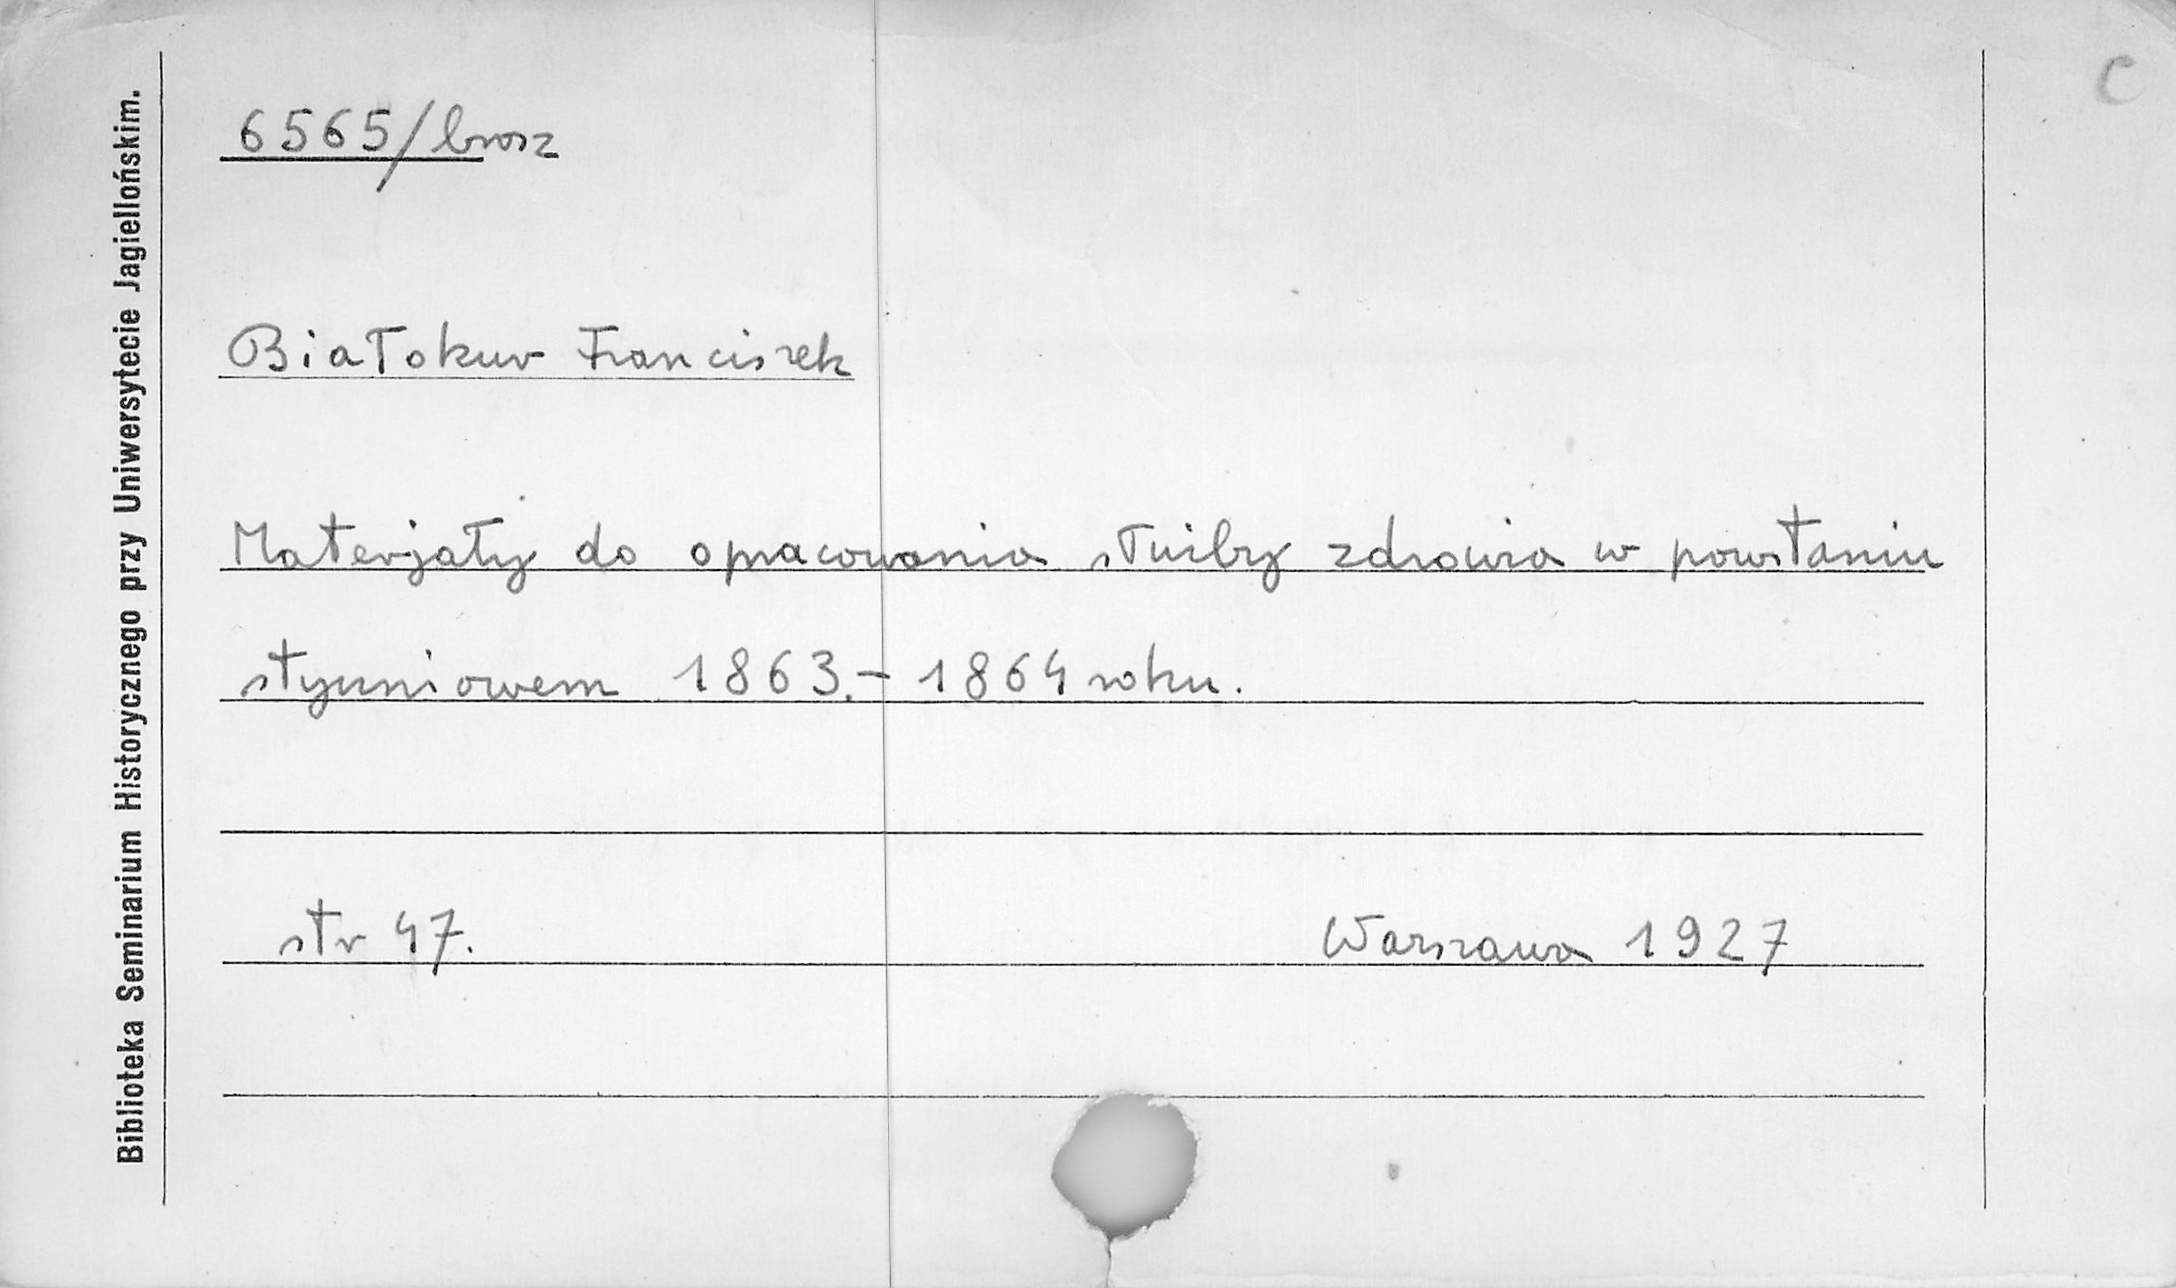 C
6565/brosz
Białokur Franciszek
Materjały do opracowania służby zdrowia w powstaniu
styczniowem 1863.-1864 roku.
str 47. Warszawa 1927
Biblioteka Seminarium Historycznego przy Uniwersytecie Jagiellońskim.